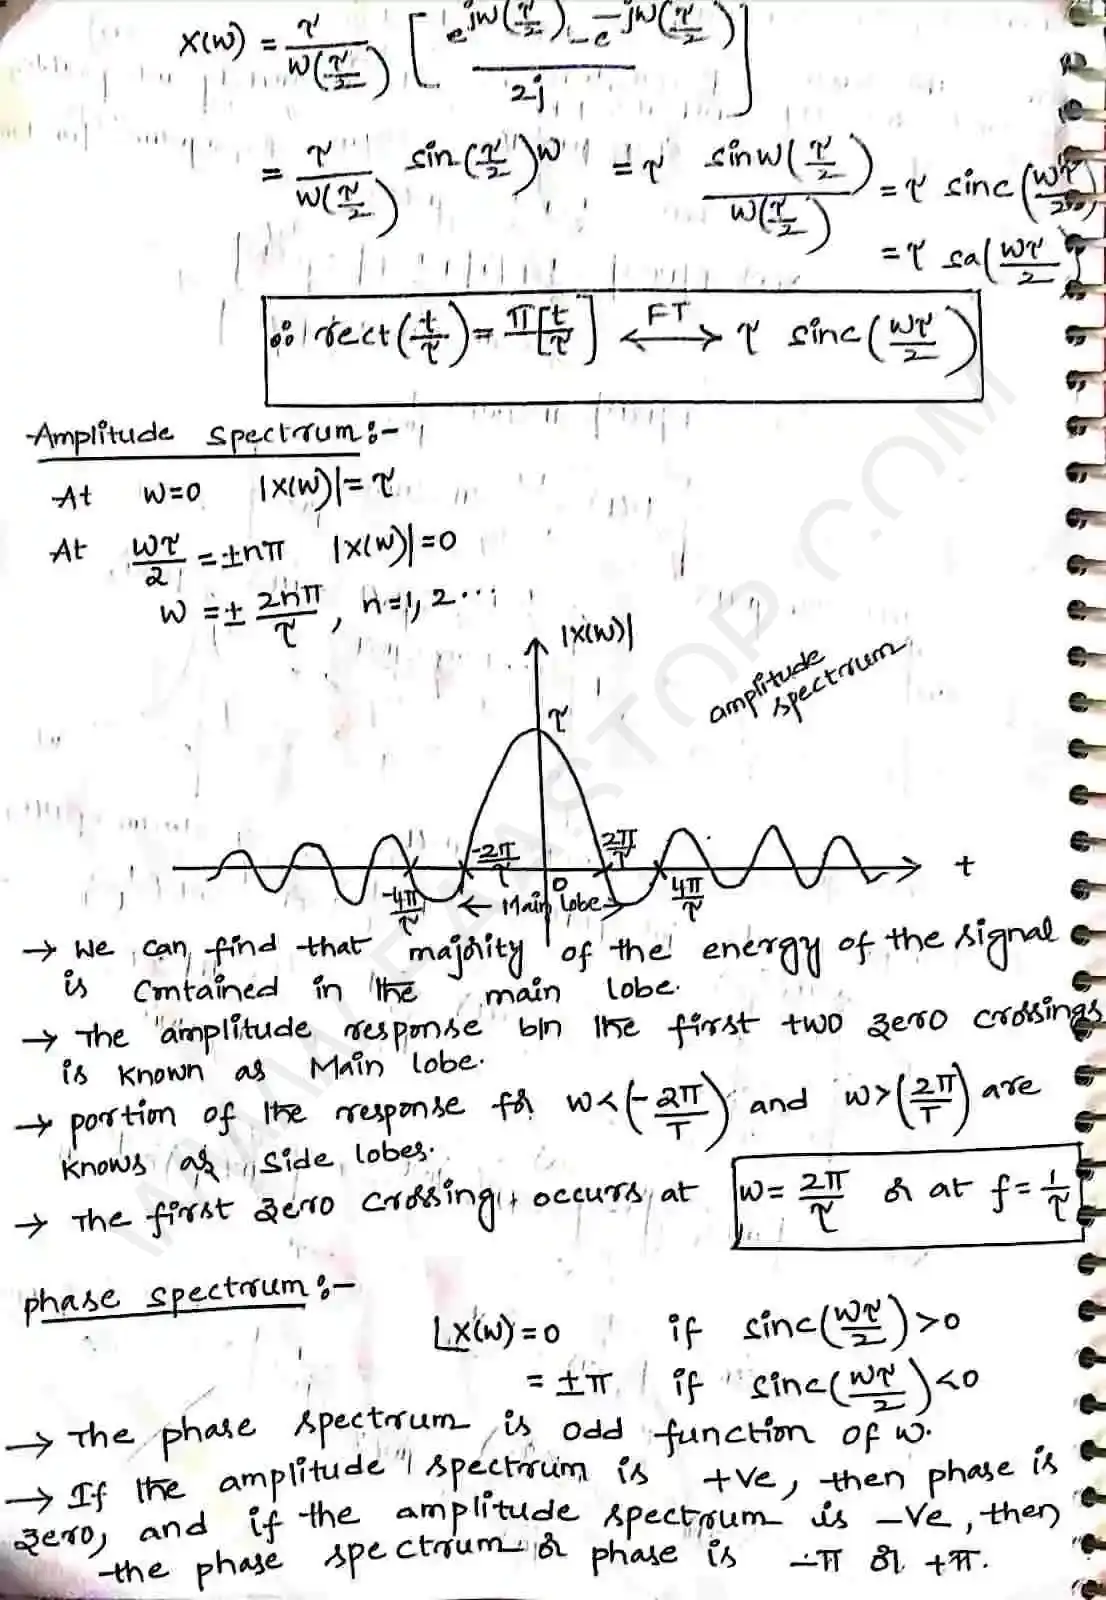 X(W) = τ/W(τ/2) [ (e^jW(τ/2) - e^-jW(τ/2)) / 2j ]
= τ/W(τ/2) sin(τ/2)W = τ sinW(τ/2)/W(τ/2) = τ sinc(Wτ/2)
= τ sa(Wτ/2)
∴ rect(t/τ) = π[t/τ] ←FT→ τ sinc(Wτ/2)
Amplitude spectrum:-
At W=0 |X(W)|= τ
At Wτ/2 = ±nπ |X(W)|=0
W = ± 2nπ/τ, n=1, 2 ...
|X(W)|
amplitude
spectrum
τ
-2π/τ 2π/τ
0
t
-4π/τ ← Main lobe → 4π/τ
→ We can find that majority of the energy of the signal
is contained in the main lobe.
→ The amplitude response b/n the first two zero crossings
is known as Main lobe.
→ portion of the response for W<(-2π/T) and W>(2π/T) are
knows as side lobes.
→ The first zero crossing occurs at W= 2π/τ or at f= 1/τ
phase spectrum:-
∠X(W) = 0 if sinc(Wτ/2)>0
= ±π if sinc(Wτ/2)<0
→ The phase spectrum is odd function of W.
→ If the amplitude spectrum is +ve, then phase is
zero, and if the amplitude spectrum is -ve, then
the phase spectrum or phase is -π or +π.